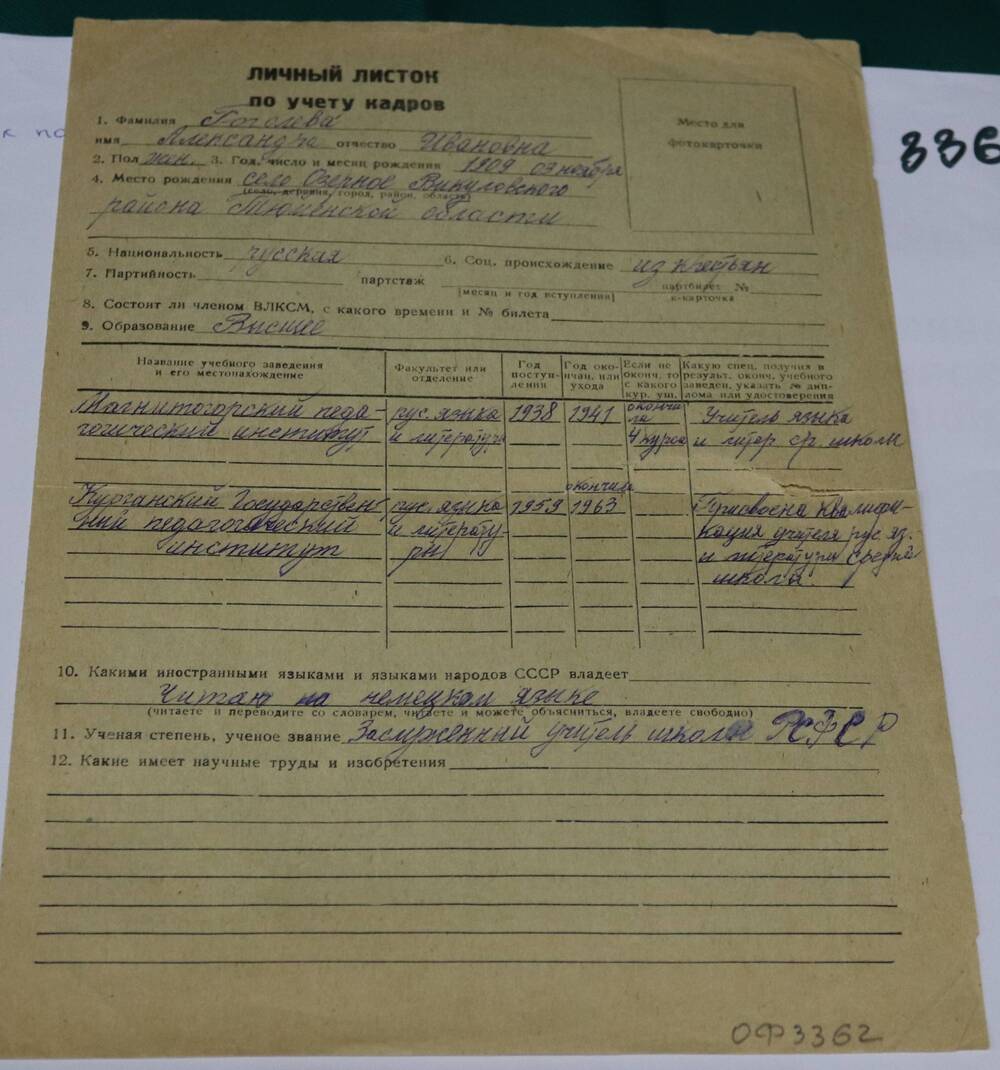 ЛИЧНЫЙ ЛИСТОК
по учету кадров
Место для
фотокарточки
336
к по
1. Фамилия Гоголева
имя Александра отчество Ивановна
2. Пол жен. 3. Год, число и месяц рождения 1909 07 ноября
4. Место рождения село Озерное Викуловского
(село, деревня, город, район, область)
района Тюменской области
5. Национальность русская 6. Соц. происхождение из крестьян
7. Партийность партстаж партбилет №
(месяц и год вступления) к-карточка
8. Состоит ли членом ВЛКСМ, с какого времени и № билета
9. Образование Высшее
Название учебного заведения и его местонахождение
Факультет или отделение
Год поступ-ления
Год око-нчан, или ухода
Если не оконч. то с какого кур. уш.
Какую спец. получил в результ. оконч. учебного заведен. указать № дип-лома или удостоверения
Магнитогорский педа- рус. языка 1938 1941 окончи Учитель языка
гогический институт и литературы ла 4 курса и литер ср. школы
Курганский Государствен- рус. языка 1959 окончила 1963 Присвоена квалифи-
ный педагогический и литерату- кация учителя рус. яз.
институт ры и литературы средней
школы
10. Какими иностранными языками и языками народов СССР владеет
Читаю на немецком языке
(читаете и переводите со словарем, читаете и можете объясниться, владеете свободно)
11. Ученая степень, ученое звание Заслуженный учитель школы РСФСР
12. Какие имеет научные труды и изобретения
ОФ3362